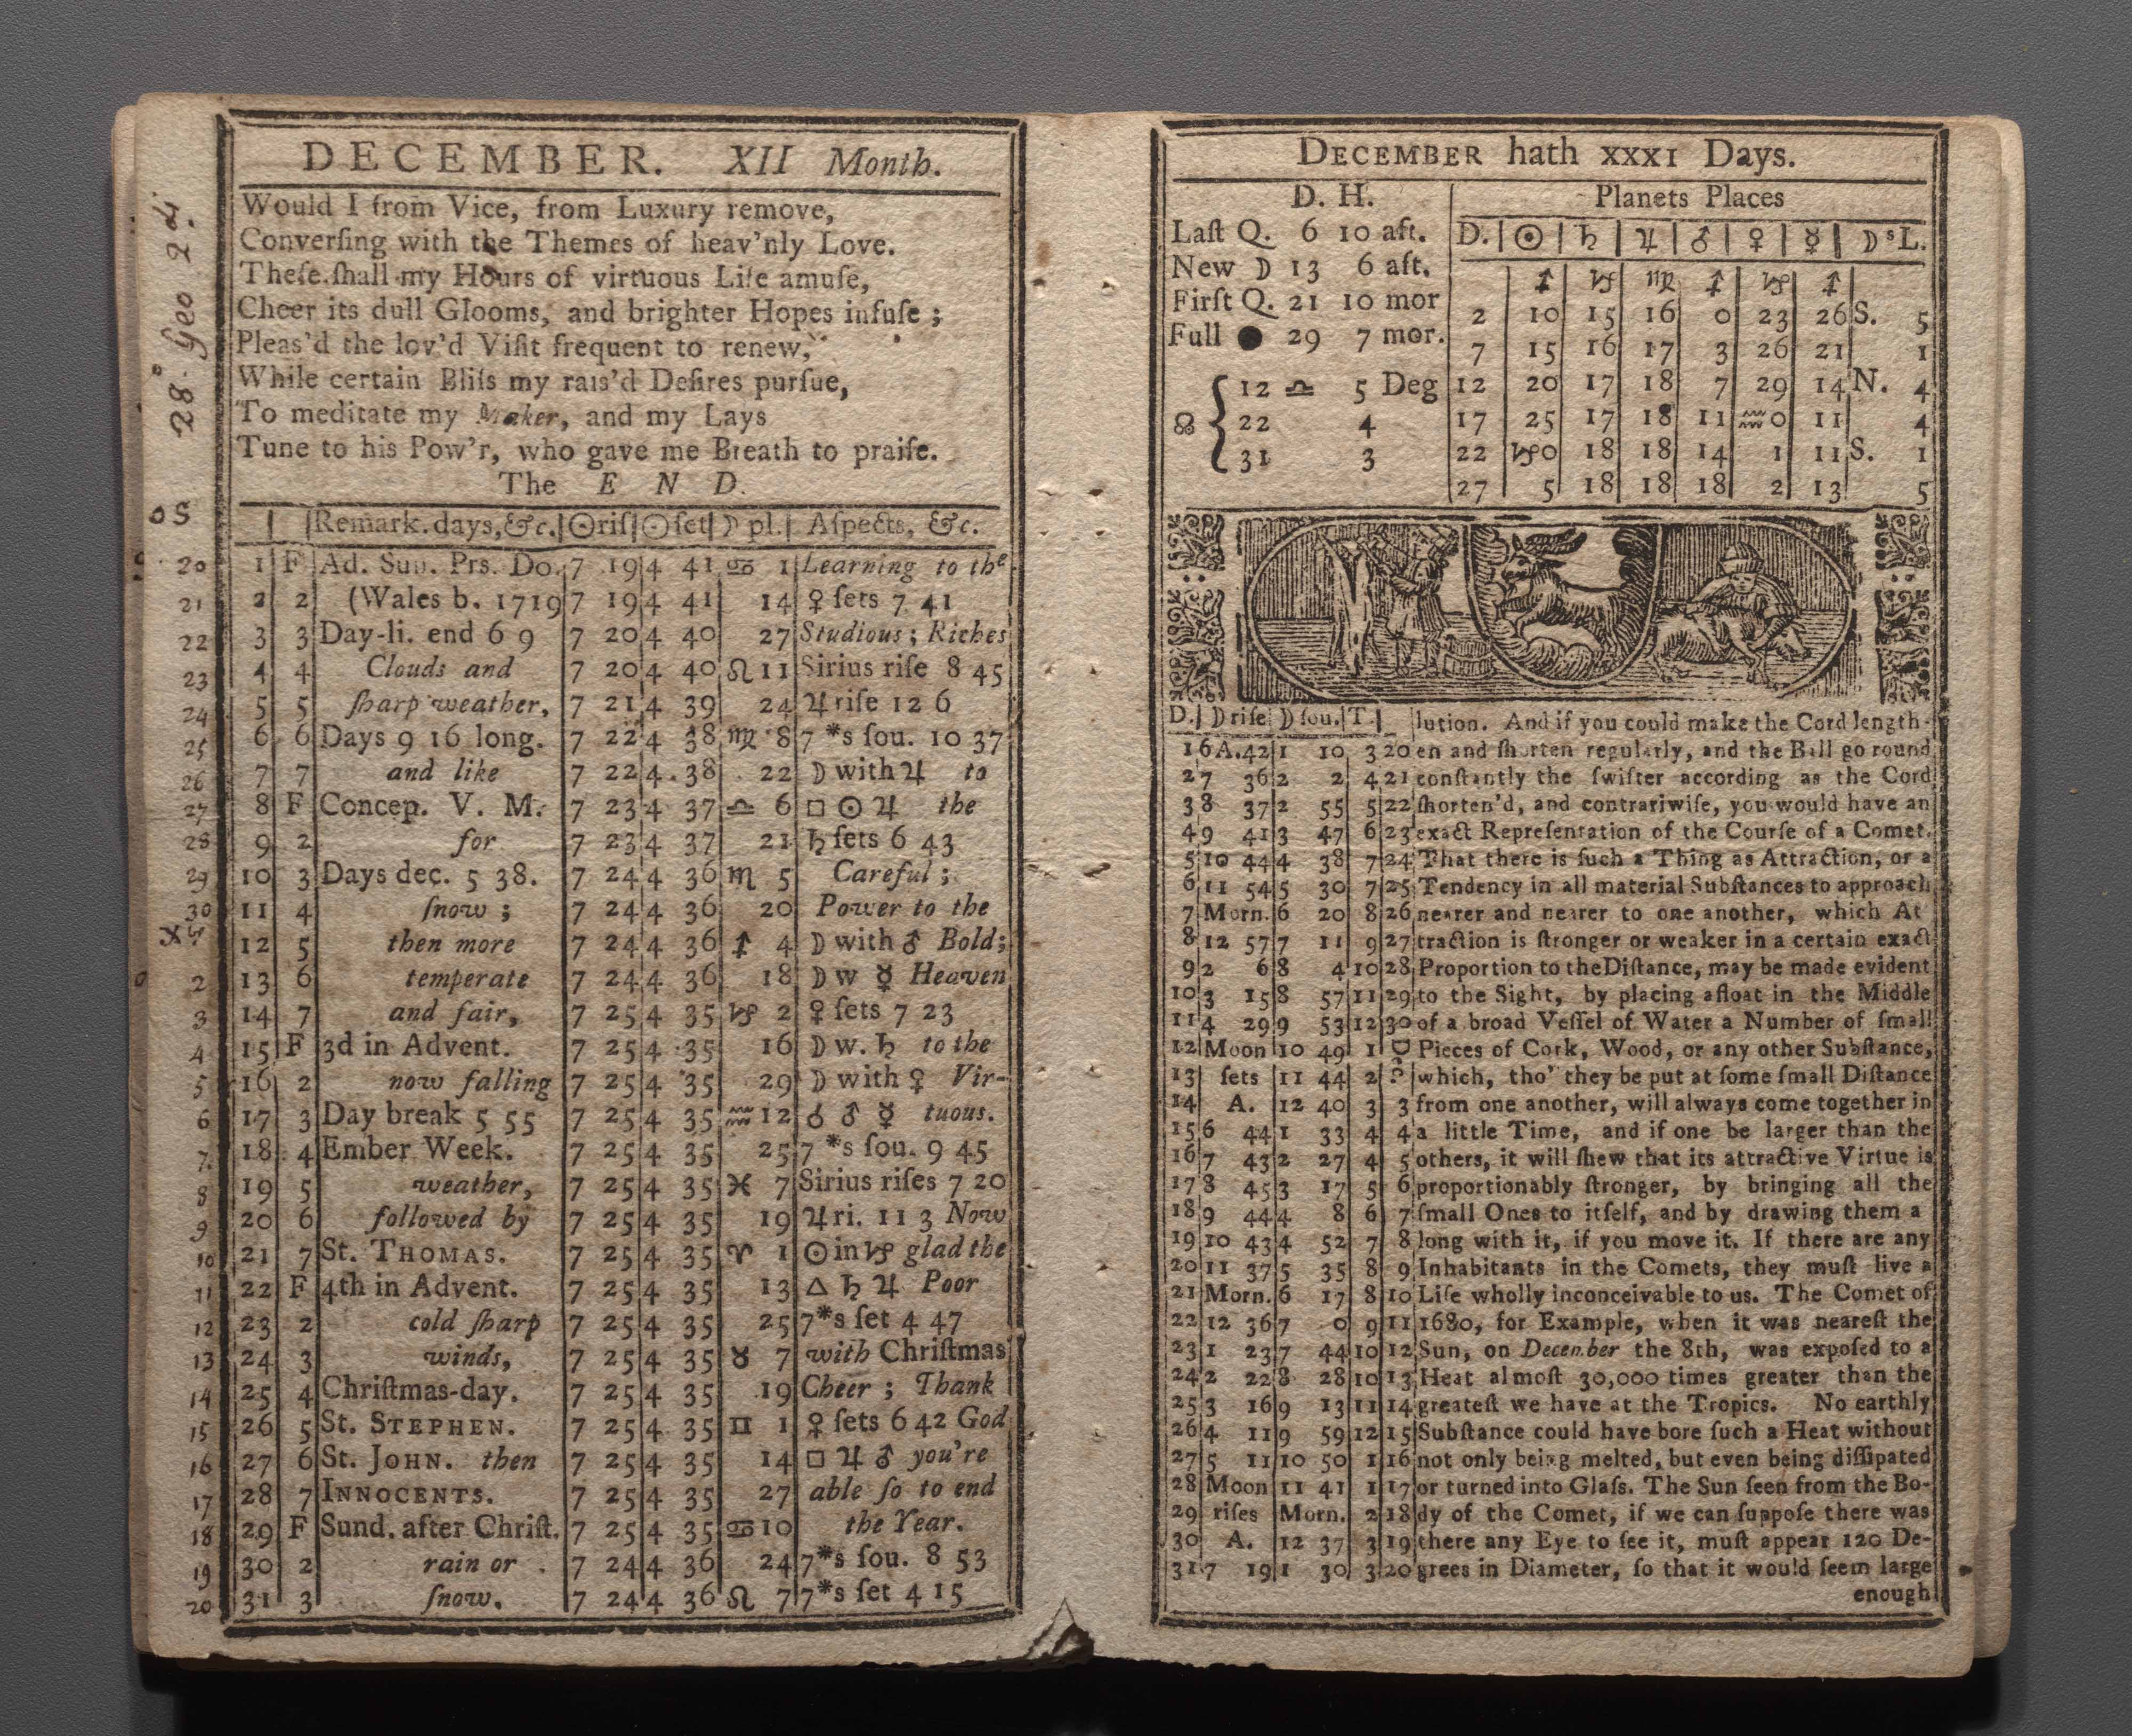 28 Geo 2d.
DECEMBER. XII Month.
Would I from Vice, from Luxury remove,
Converſing with the Themes of heav'nly Love.
Theſe ſhall my Hours of virtuous Life amuſe,
Cheer its dull Glooms, and brighter Hopes infuſe ;
Pleas'd the lov'd Viſit frequent to renew,
While certain Bliſs my rais'd Deſires purſue,
To meditate my Maker, and my Lays
Tune to his Pow'r, who gave me Breath to praiſe.
The E N D.
OS | | Remark. days, &c. | ☉ riſ | ☉ ſet | ☽ pl. | Aſpects, &c.
20 1 F Ad. Sun. Prs. Do. 7 19 4 41 ♋ 1 Learning to the
21 2 2 (Wales b. 1719 7 19 4 41 14 ♀ ſets 7 41
22 3 3 Day-li. end 6 9 7 20 4 40 27 Studious ; Riches
23 4 4 Clouds and 7 20 4 40 ♌ 11 Sirius riſe 8 45
24 5 5 ſharp weather, 7 21 4 39 24 ♃ riſe 12 6
25 6 6 Days 9 16 long. 7 22 4 38 ♍ 8 7 *s ſou. 10 37
26 7 7 and like 7 22 4 38 22 ☽ with ♃ to
27 8 F Concep. V. M. 7 23 4 37 ♎ 6 □ ☉ ♃ the
28 9 2 for 7 23 4 37 21 ♄ ſets 6 43
29 10 3 Days dec. 5 38. 7 24 4 36 ♏ 5 Careful ;
30 11 4 ſnow ; 7 24 4 36 20 Power to the
12 5 then more 7 24 4 36 ♐ 4 ☽ with ♂ Bold;
2 13 6 temperate 7 24 4 36 18 ☽ w ☿ Heaven
3 14 7 and fair, 7 25 4 35 ♑ 2 ♀ ſets 7 23
4 15 F 3d in Advent. 7 25 4 35 16 ☽ w. ♄ to the
5 16 2 now falling 7 25 4 35 29 ☽ with ♀ Vir-
6 17 3 Day break 5 55 7 25 4 35 ♒ 12 ☌ ♂ ☿ tuous.
7 18 4 Ember Week. 7 25 4 35 25 7 *s ſou. 9 45
8 19 5 weather, 7 25 4 35 ♓ 7 Sirius riſes 7 20
9 20 6 followed by 7 25 4 35 19 ♃ ri. 11 3 Now
10 21 7 St. THOMAS. 7 25 4 35 ♈ 1 ☉ in ♑ glad the
11 22 F 4th in Advent. 7 25 4 35 13 △ ♄ ♃ Poor
12 23 2 cold ſharp 7 25 4 35 25 7*s ſet 4 47
13 24 3 winds, 7 25 4 35 ♉ 7 with Chriſtmas
14 25 4 Chriſtmas-day. 7 25 4 35 19 Cheer ; Thank
15 26 5 St. STEPHEN. 7 25 4 35 ♊ 1 ♀ ſets 6 42 God
16 27 6 St. JOHN. then 7 25 4 35 14 □ ♃ ♂ you're
17 28 7 INNOCENTS. 7 25 4 35 27 able ſo to end
18 29 F Sund. after Chriſt. 7 25 4 35 ♋ 10 the Year.
19 30 2 rain or 7 24 4 36 24 7*s ſou. 8 53
20 31 3 ſnow. 7 24 4 36 ♌ 7 7*s ſet 4 15
DECEMBER hath XXXI Days.
D. H.
Laſt Q. 6 10 aft.
New ☽ 13 6 aft.
Firſt Q. 21 10 mor
Full ● 29 7 mor.
☊ { 12 ♎ 5 Deg
22 4
31 3
Planets Places
D. | ☉ | ♄ | ♃ | ♂ | ♀ | ☿ | ☽sL.
♐ ♑ ♍ ♐ ♑ ♐
2 10 15 16 0 23 26 S. 5
7 15 16 17 3 26 21 1
12 20 17 18 7 29 14 N. 4
17 25 17 18 11 ♒0 11 4
22 ♑0 18 18 14 1 11 S. 1
27 5 18 18 18 2 13 5
D. | ☽ riſe | ☽ ſou. | T. | lution. And if you could make the Cord length-
1 6A.42 1 10 3 20 en and ſhorten regularly, and the Ball go round
2 7 36 2 2 4 21 conſtantly the ſwifter according as the Cord
3 8 37 2 55 5 22 ſhorten'd, and contrariwiſe, you would have an
4 9 41 3 47 6 23 exact Repreſentation of the Courſe of a Comet.
5 10 44 4 38 7 24 That there is ſuch a Thing as Attraction, or a
6 11 54 5 30 7 25 Tendency in all material Subſtances to approach
7 Morn. 6 20 8 26 nearer and nearer to one another, which At
8 12 57 7 11 9 27 traction is ſtronger or weaker in a certain exact
9 2 6 8 4 10 28 Proportion to the Diſtance, may be made evident
10 3 15 8 57 11 29 to the Sight, by placing afloat in the Middle
11 4 29 9 53 12 30 of a broad Veſſel of Water a Number of ſmall
12 Moon 10 49 1 D Pieces of Cork, Wood, or any other Subſtance,
13 ſets 11 44 2 which, tho' they be put at ſome ſmall Diſtance
14 A. 12 40 3 3 from one another, will always come together in
15 6 44 1 33 4 4 a little Time, and if one be larger than the
16 7 43 2 27 4 5 others, it will ſhew that its attractive Virtue is
17 8 45 3 17 5 6 proportionably ſtronger, by bringing all the
18 9 44 4 8 6 7 ſmall Ones to itſelf, and by drawing them a
19 10 43 4 52 7 8 long with it, if you move it. If there are any
20 11 37 5 35 8 9 Inhabitants in the Comets, they muſt live a
21 Morn. 6 17 8 10 Life wholly inconceivable to us. The Comet of
22 12 36 7 0 9 11 1680, for Example, when it was neareſt the
23 1 23 7 44 10 12 Sun, on December the 8th, was expoſed to a
24 2 22 8 28 10 13 Heat almoſt 30,000 times greater than the
25 3 16 9 13 11 14 greateſt we have at the Tropics. No earthly
26 4 11 9 59 12 15 Subſtance could have bore ſuch a Heat without
27 5 11 10 50 1 16 not only being melted, but even being diſſipated
28 Moon 11 41 1 17 or turned into Glaſs. The Sun ſeen from the Bo-
29 riſes Morn. 2 18 dy of the Comet, if we can ſuppoſe there was
30 A. 12 37 3 19 there any Eye to ſee it, muſt appear 120 De-
31 7 19 1 30 3 20 grees in Diameter, ſo that it would ſeem large
enough